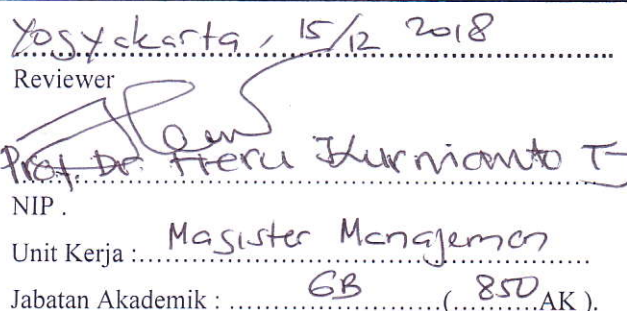 Yogyakarta, 15/12 2018
Reviewer
Prof. Dr. Heru Kurnianto T
NIP .
Unit Kerja : Magister Manajemen
Jabatan Akademik : GB (850 AK ).